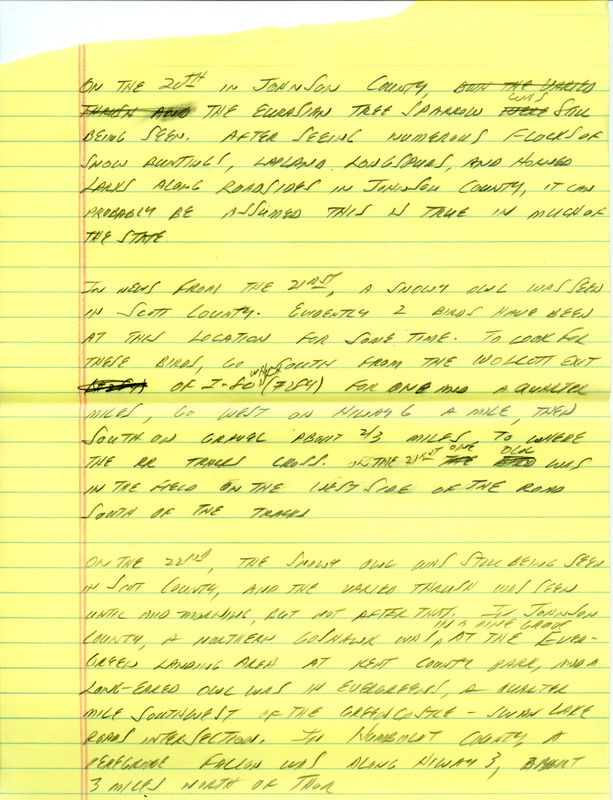 ON THE 20TH IN JOHNSON COUNTY, BOTH THE VARIED
THRUSH AND THE EURASIAN TREE SPARROW WERE WAS STILL
BEING SEEN. AFTER SEEING NUMEROUS FLOCKS OF
SNOW BUNTINGS, LAPLAND LONGSPURS, AND HORNED
LARKS ALONG ROADSIDES IN JOHNSON COUNTY, IT CAN
PROBABLY BE ASSUMED THIS IS TRUE IN MUCH OF
THE STATE
IN NEWS FROM THE 21ST, A SNOWY OWL WAS SEEN
IN SCOTT COUNTY. EVIDENTLY 2 BIRDS HAVE BEEN
AT THIS LOCATION FOR SOME TIME. TO LOOK FOR
THESE BIRDS, GO SOUTH FROM THE WOLCOTT EXIT
OF I-80 (#284) FOR ONE AND A QUARTER
MILES, GO WEST ON HIWAY 6 A MILE, THEN
SOUTH ON GRAVEL ABOUT 2/3 MILES TO WHERE
THE RR TRACKS CROSS. ON THE 21ST ONE OWL WAS
IN THE FIELD ON THE WEST SIDE OF THE ROAD
SOUTH OF THE TRACKS
ON THE 22ND, THE SNOWY OWL WAS STILL BEING SEEN
IN SCOT COUNTY, AND THE VARIED THRUSH WAS SEEN
UNTIL MID-MORNING, BUT NOT AFTER THAT. IN JOHNSON
COUNTY, A NORTHERN GOSHAWK WAS IN A PINE GROVE, AT THE EVER-
GREEN LANDING AREA AT KENT COUNTY PARK, AND A
LONG-EARED OWL WAS IN EVERGREENS, A QUARTER
MILE SOUTHWEST OF THE GREENCASTLE - SWAN LAKE
ROADS INTERSECTION. IN HUMBOLDT COUNTY, A
PEREGRINE FALCON WAS ALONG HIWAY 3, ABOUT
3 MILES NORTH OF THOR